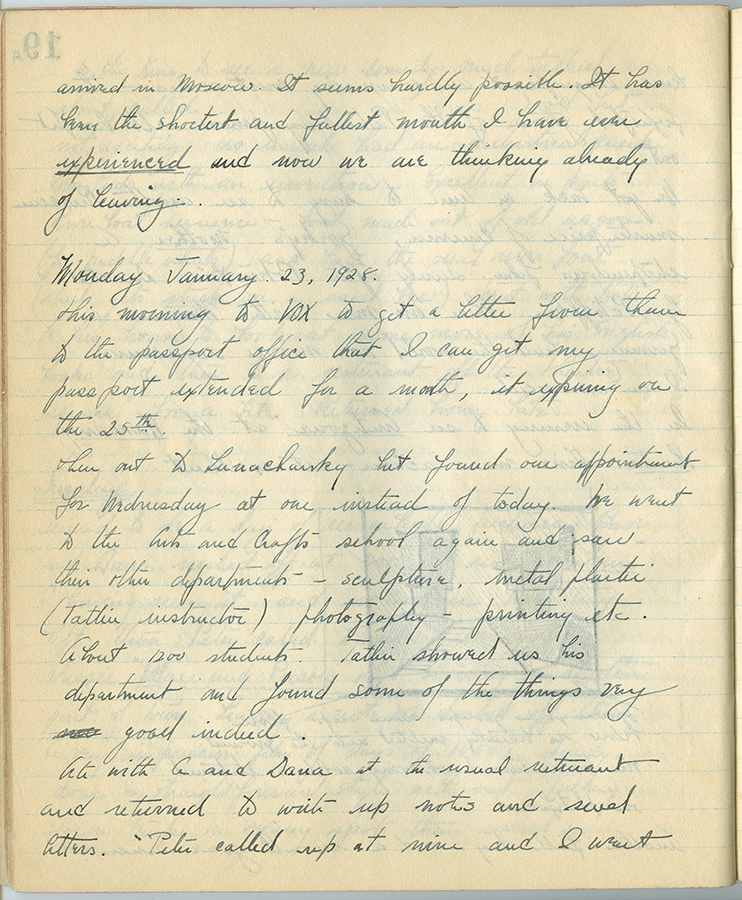 arrived in Moscow. It seems hardly possible. It has
been the shortest and fullest month I have ever
experienced and now we are thinking already
of leaving.
Monday January 23, 1928.
This morning to VOX to get a letter from them
to the passport office that I can get my
passport extended for a month, it expiring on
the 25th
Then out to Lunacharsky but found our appointment
for Wednesday at one instead of today. We went
to the Arts and Crafts school again and saw
their other departments - sculpture, metal plastic
(Tatlin instructor) photography - printing etc.
About 1200 students Tatlin showed us his
department and found some of the things very
good indeed.
Ate with A and Dana at the usual
and returned to write up notes and send
letters. Pete called up at nine and I went